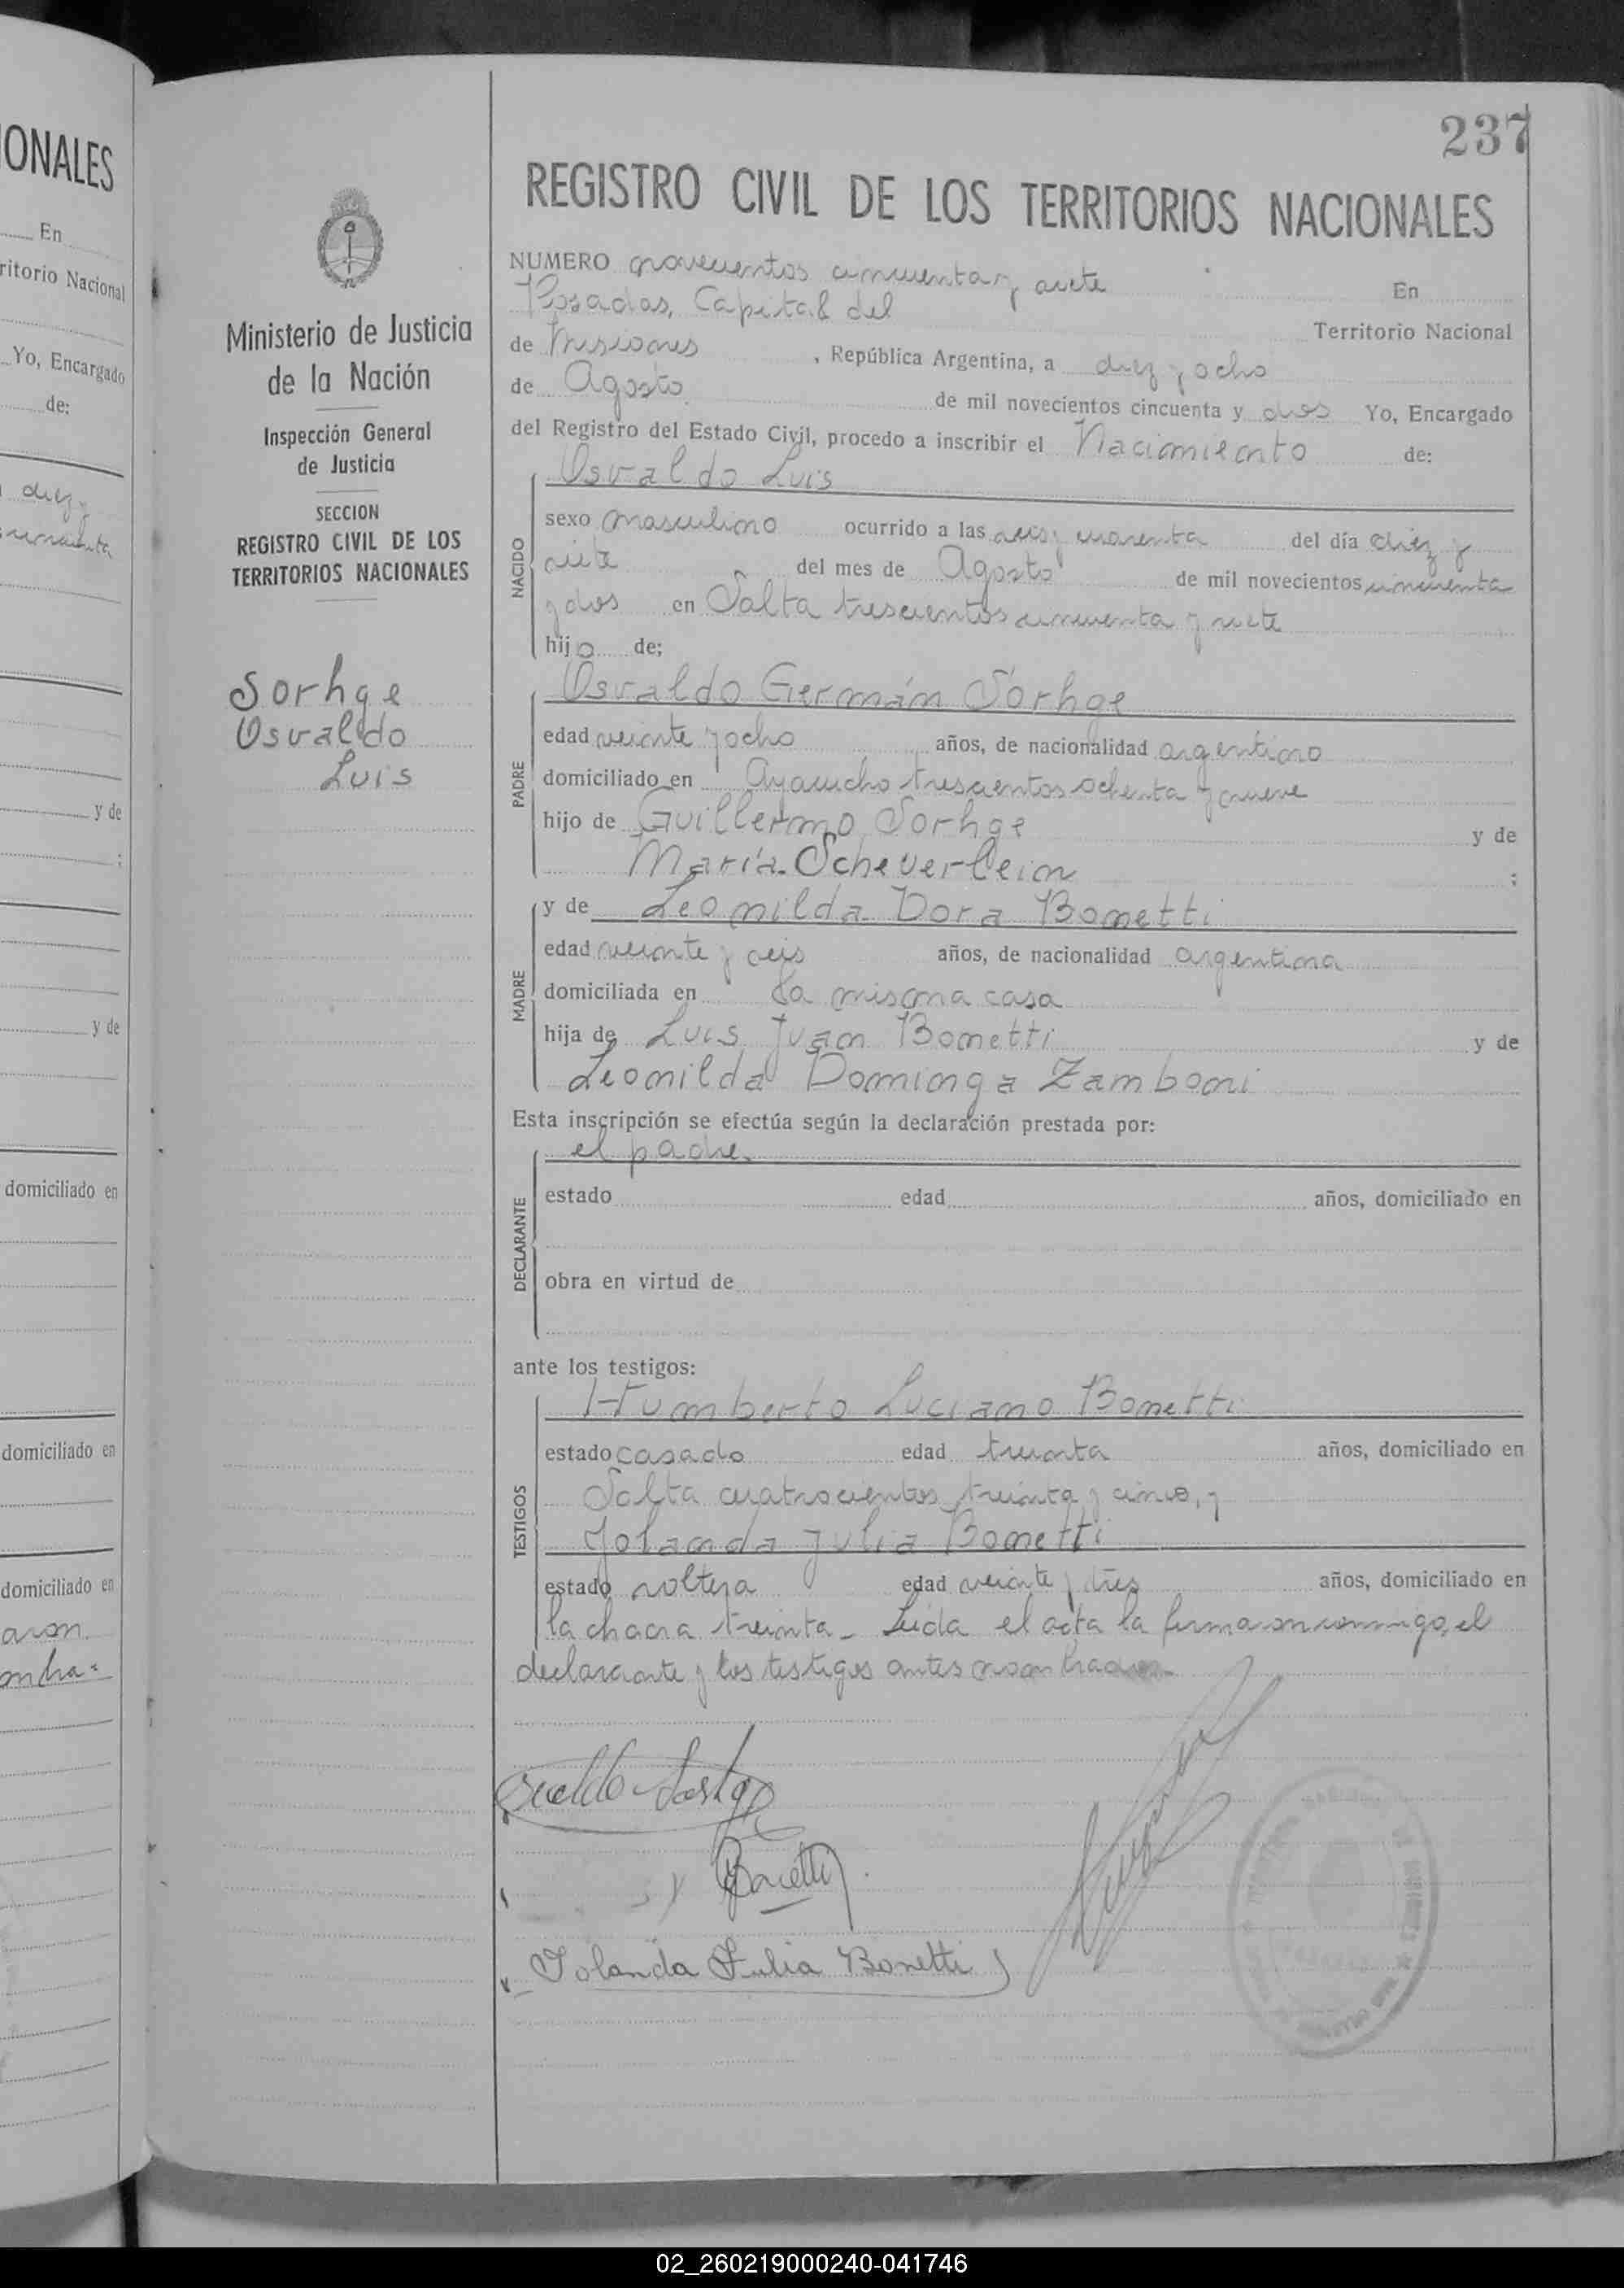 ONALES
En
ritorio Nacional
Yo, Encargado
de:
diez y
y de
;
y de
domiciliado en
domiciliado en
domiciliado en
aron.
Ministerio de Justicia
de la Nación
Inspección General
de Justicia
SECCION
REGISTRO CIVIL DE LOS
TERRITORIOS NACIONALES
Sorhge
Osvaldo
Luis
237
REGISTRO CIVIL DE LOS TERRITORIOS NACIONALES
NUMERO novecientos cincuenta y siete En
Posadas, Capital del Territorio Nacional
de Misiones, República Argentina, a diez y ocho
de Agosto de mil novecientos cincuenta y dos Yo, Encargado
del Registro del Estado Civil, procedo a inscribir el Nacimiento de:
Osvaldo Luis
NACIDO
sexo masculino ocurrido a las seis y cuarenta del día diez y
siete del mes de Agosto de mil novecientos cincuenta
y dos en Salta trescientos cincuenta y siete
hijo de;
Osvaldo Germán Sorhge
PADRE
edad veinte y ocho años, de nacionalidad argentino
domiciliado en Ayacucho trescientos ochenta y nueve
hijo de Guillermo Sorhge y de
María Scheverlein ;
y de Leonilda Dora Bonetti
MADRE
edad veinte y seis años, de nacionalidad argentina
domiciliada en la misma casa
hija de Luis Juan Bonetti y de
Leonilda Dominga Zamboni
Esta inscripción se efectúa según la declaración prestada por:
el padre.
DECLARANTE
estado edad años, domiciliado en
obra en virtud de
ante los testigos:
Humberto Luciano Bonetti
TESTIGOS
estado casado edad treinta años, domiciliado en
Salta cuatrocientos treinta y cinco, y
Yolanda Julia Bonetti
estado soltera edad veinte y tres años, domiciliado en
la chacra treinta_ Leida el acta la firmaron conmigo, el
declarante y los testigos antes nombrados_
Osvaldo Sorhge
Bonetti
Yolanda Julia Bonetti
02_260219000240-041746